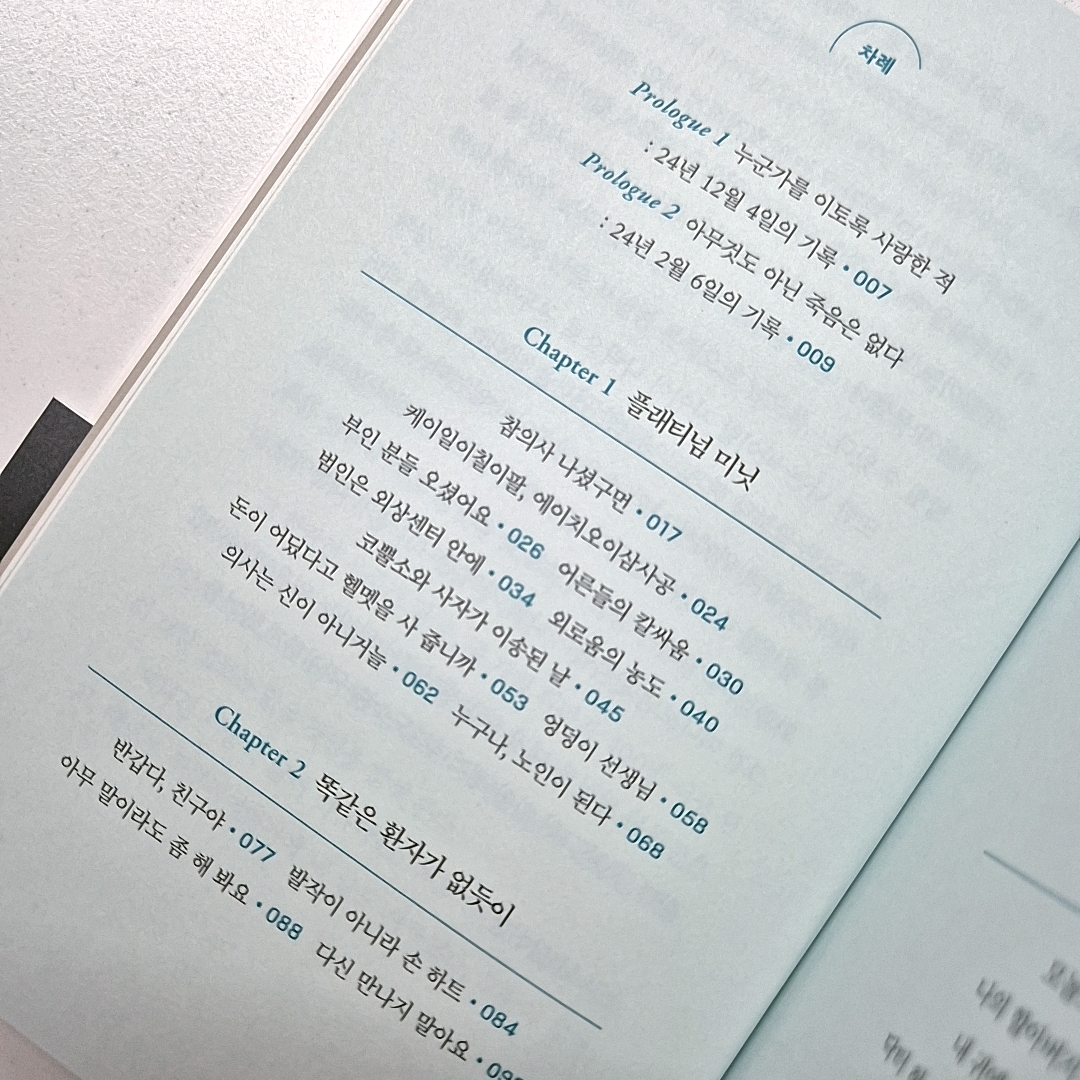 차례
Prologue 1 누군가를 이토록 사랑한 적
: 24년 12월 4일의 기록 • 007
Prologue 2 아무것도 아닌 죽음은 없다
: 24년 2월 6일의 기록 • 009
Chapter 1 플래티넘 미닛
참의사 나셨구먼 • 017
케이일이칠이팔, 에이치오이삼사공 • 024
부인 분들 오셨어요 • 026 어른들의 칼싸움 • 030
범인은 외상센터 안에 • 034 외로움의 농도 • 040
코뿔소와 사자가 이송된 날 • 045
돈이 어딨다고 헬멧을 사 줍니까 • 053 엉덩이 선생님 • 058
의사는 신이 아니거늘 • 062 누구나, 노인이 된다 • 068
Chapter 2 똑같은 환자가 없듯이
반갑다, 친구야 • 077 발작이 아니라 손 하트 • 084
아무 말이라도 좀 해 봐요 • 088 다신 만나지 말아요 •
나의
내
닥터